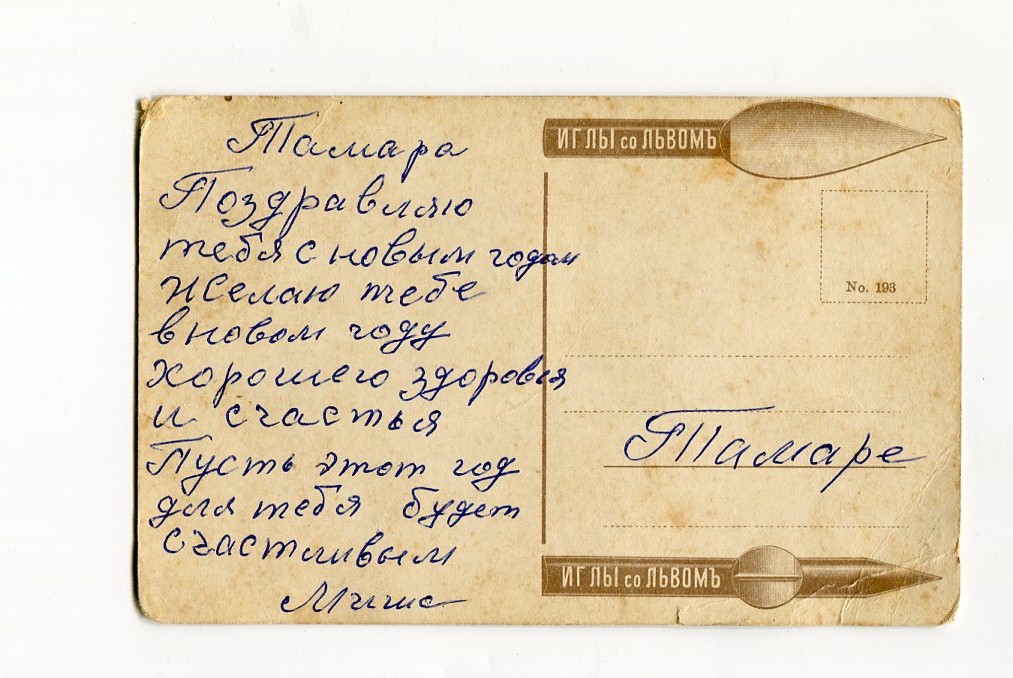 Тамара
Поздравляю
тебя с новым годом
Желаю тебе
в новом году
хорошего здоровья
и счастья
Пусть этот год
для тебя будет
счастливым
Миша
ИГЛЫ со ЛЬВОМЪ
No. 193
Тамаре
ИГЛЫ со ЛЬВОМЪ